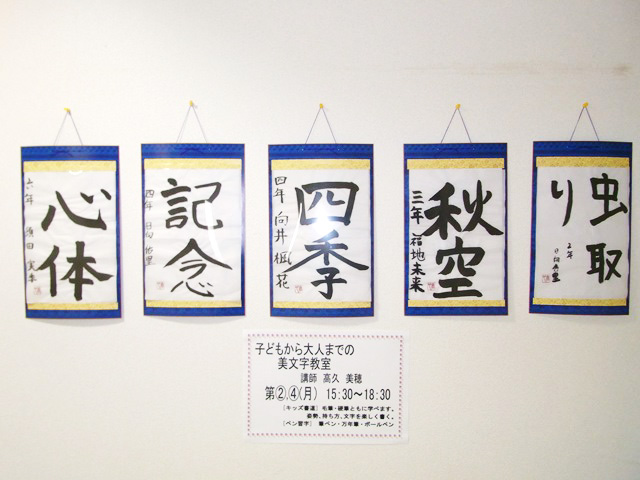 心体
六年
記念
四年
四季
四年 向井 楓花
秋空
三年 福地未来
虫取
り
2年
子どもから大人までの
美文字教室
講師 高久 美穂
第②,④(月) 15:30~18:30
[キッズ書道] 毛筆・硬筆ともに学べます。
姿勢、持ち方、文字を楽しく書く。
[ペン習字] 筆ペン・万年筆・ボールペン